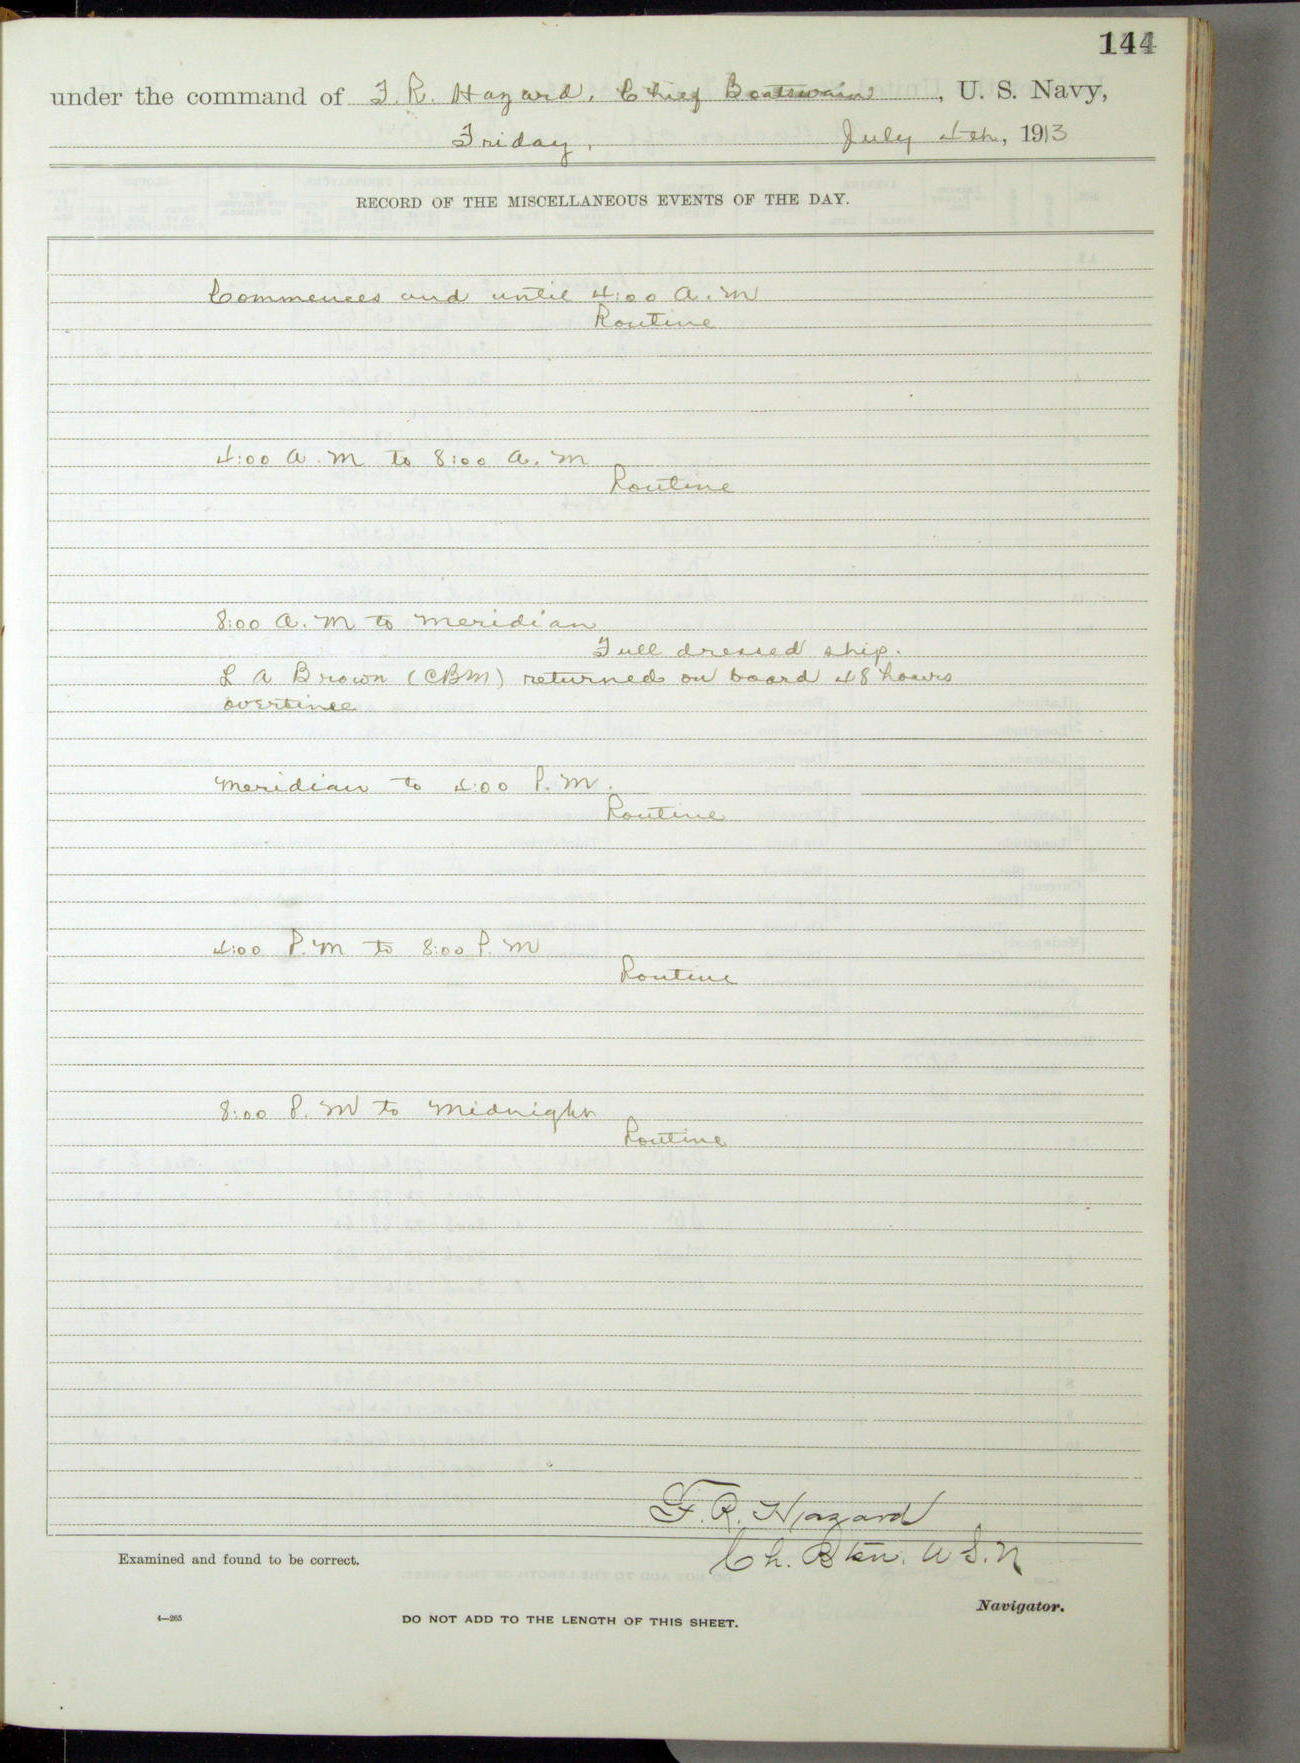 144
under the command of F. R. Hazard, Chief Boatswain, U. S. Navy,
Friday, July 4th, 1913
RECORD OF THE MISCELLANEOUS EVENTS OF THE DAY.
Commences and until 4:00 A.M
Routine
4:00 A.M to 8:00 A.M
Routine
8:00 A.M to Meridian
Full dressed ship.
L A Brown (CBM) returned on board 48 hours
overtime
Meridian to 4:00 P.M.
Routine
4:00 P.M to 8:00 P.M
Routine
8:00 P.M to Midnight
Routine
F. R. Hazard
Ch. Btsn. U.S.N
Examined and found to be correct.
Navigator.
4—265
DO NOT ADD TO THE LENGTH OF THIS SHEET.